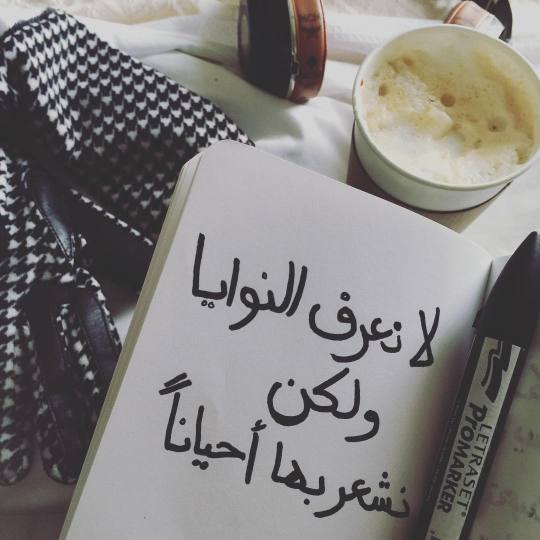 لا نعرف النوايا
ولكن
نشعر بها أحياناً
LETRASET
PROMARKER